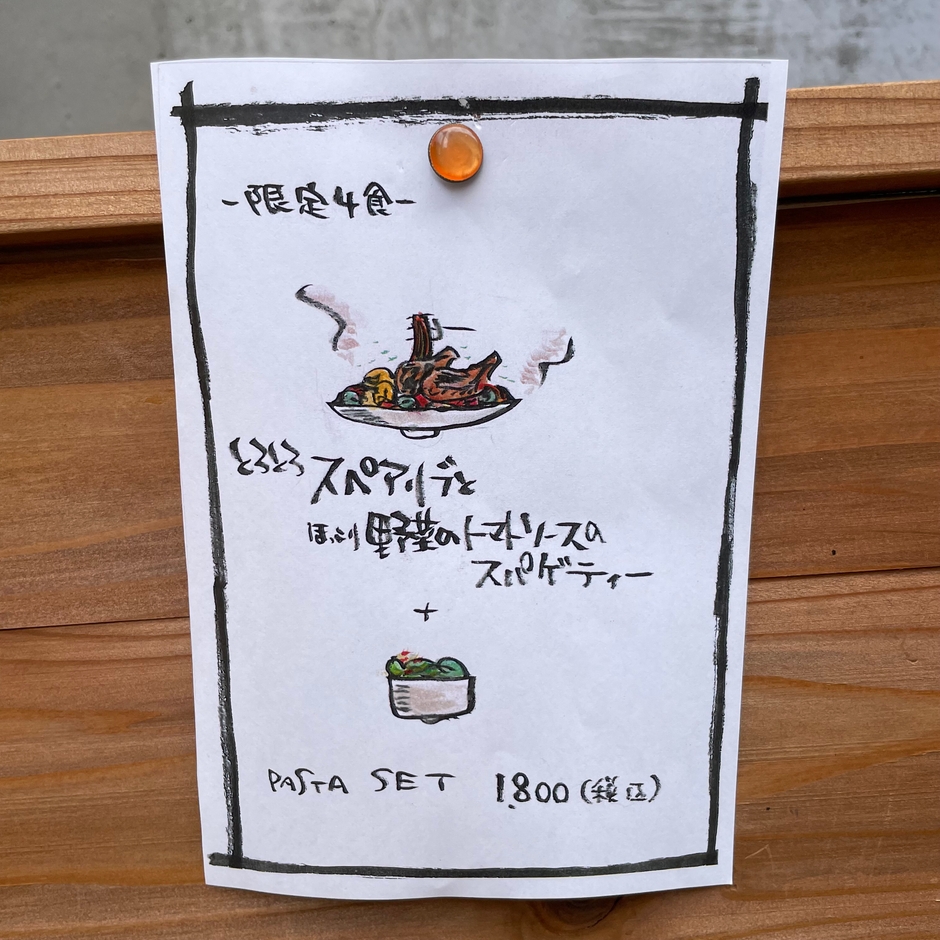 -限定4食-
とろとろ スペアリブと
ほっこり 野菜のトマトソースの
スパゲティー
+
PASTA SET 1,800(税込)